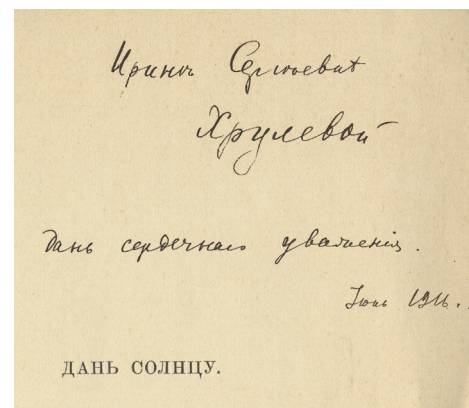 Иринѣ Сергѣевнѣ
Хрулевой
дань сердечнаго уваженія.
Іюнь 1916.
ДАНЬ СОЛНЦУ.